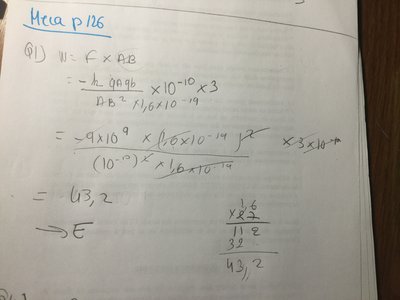 Meca p 126
Q1) W = F × AB
= -k qAqb / AB² × 1,6×10⁻¹⁹ × 10⁻¹⁰ × 3
= -9×10⁹ × (1,6×10⁻¹⁹)² / (10⁻¹⁰)² × 1,6×10⁻¹⁹
= 43,2
→ E
1,6
112
32
43,2